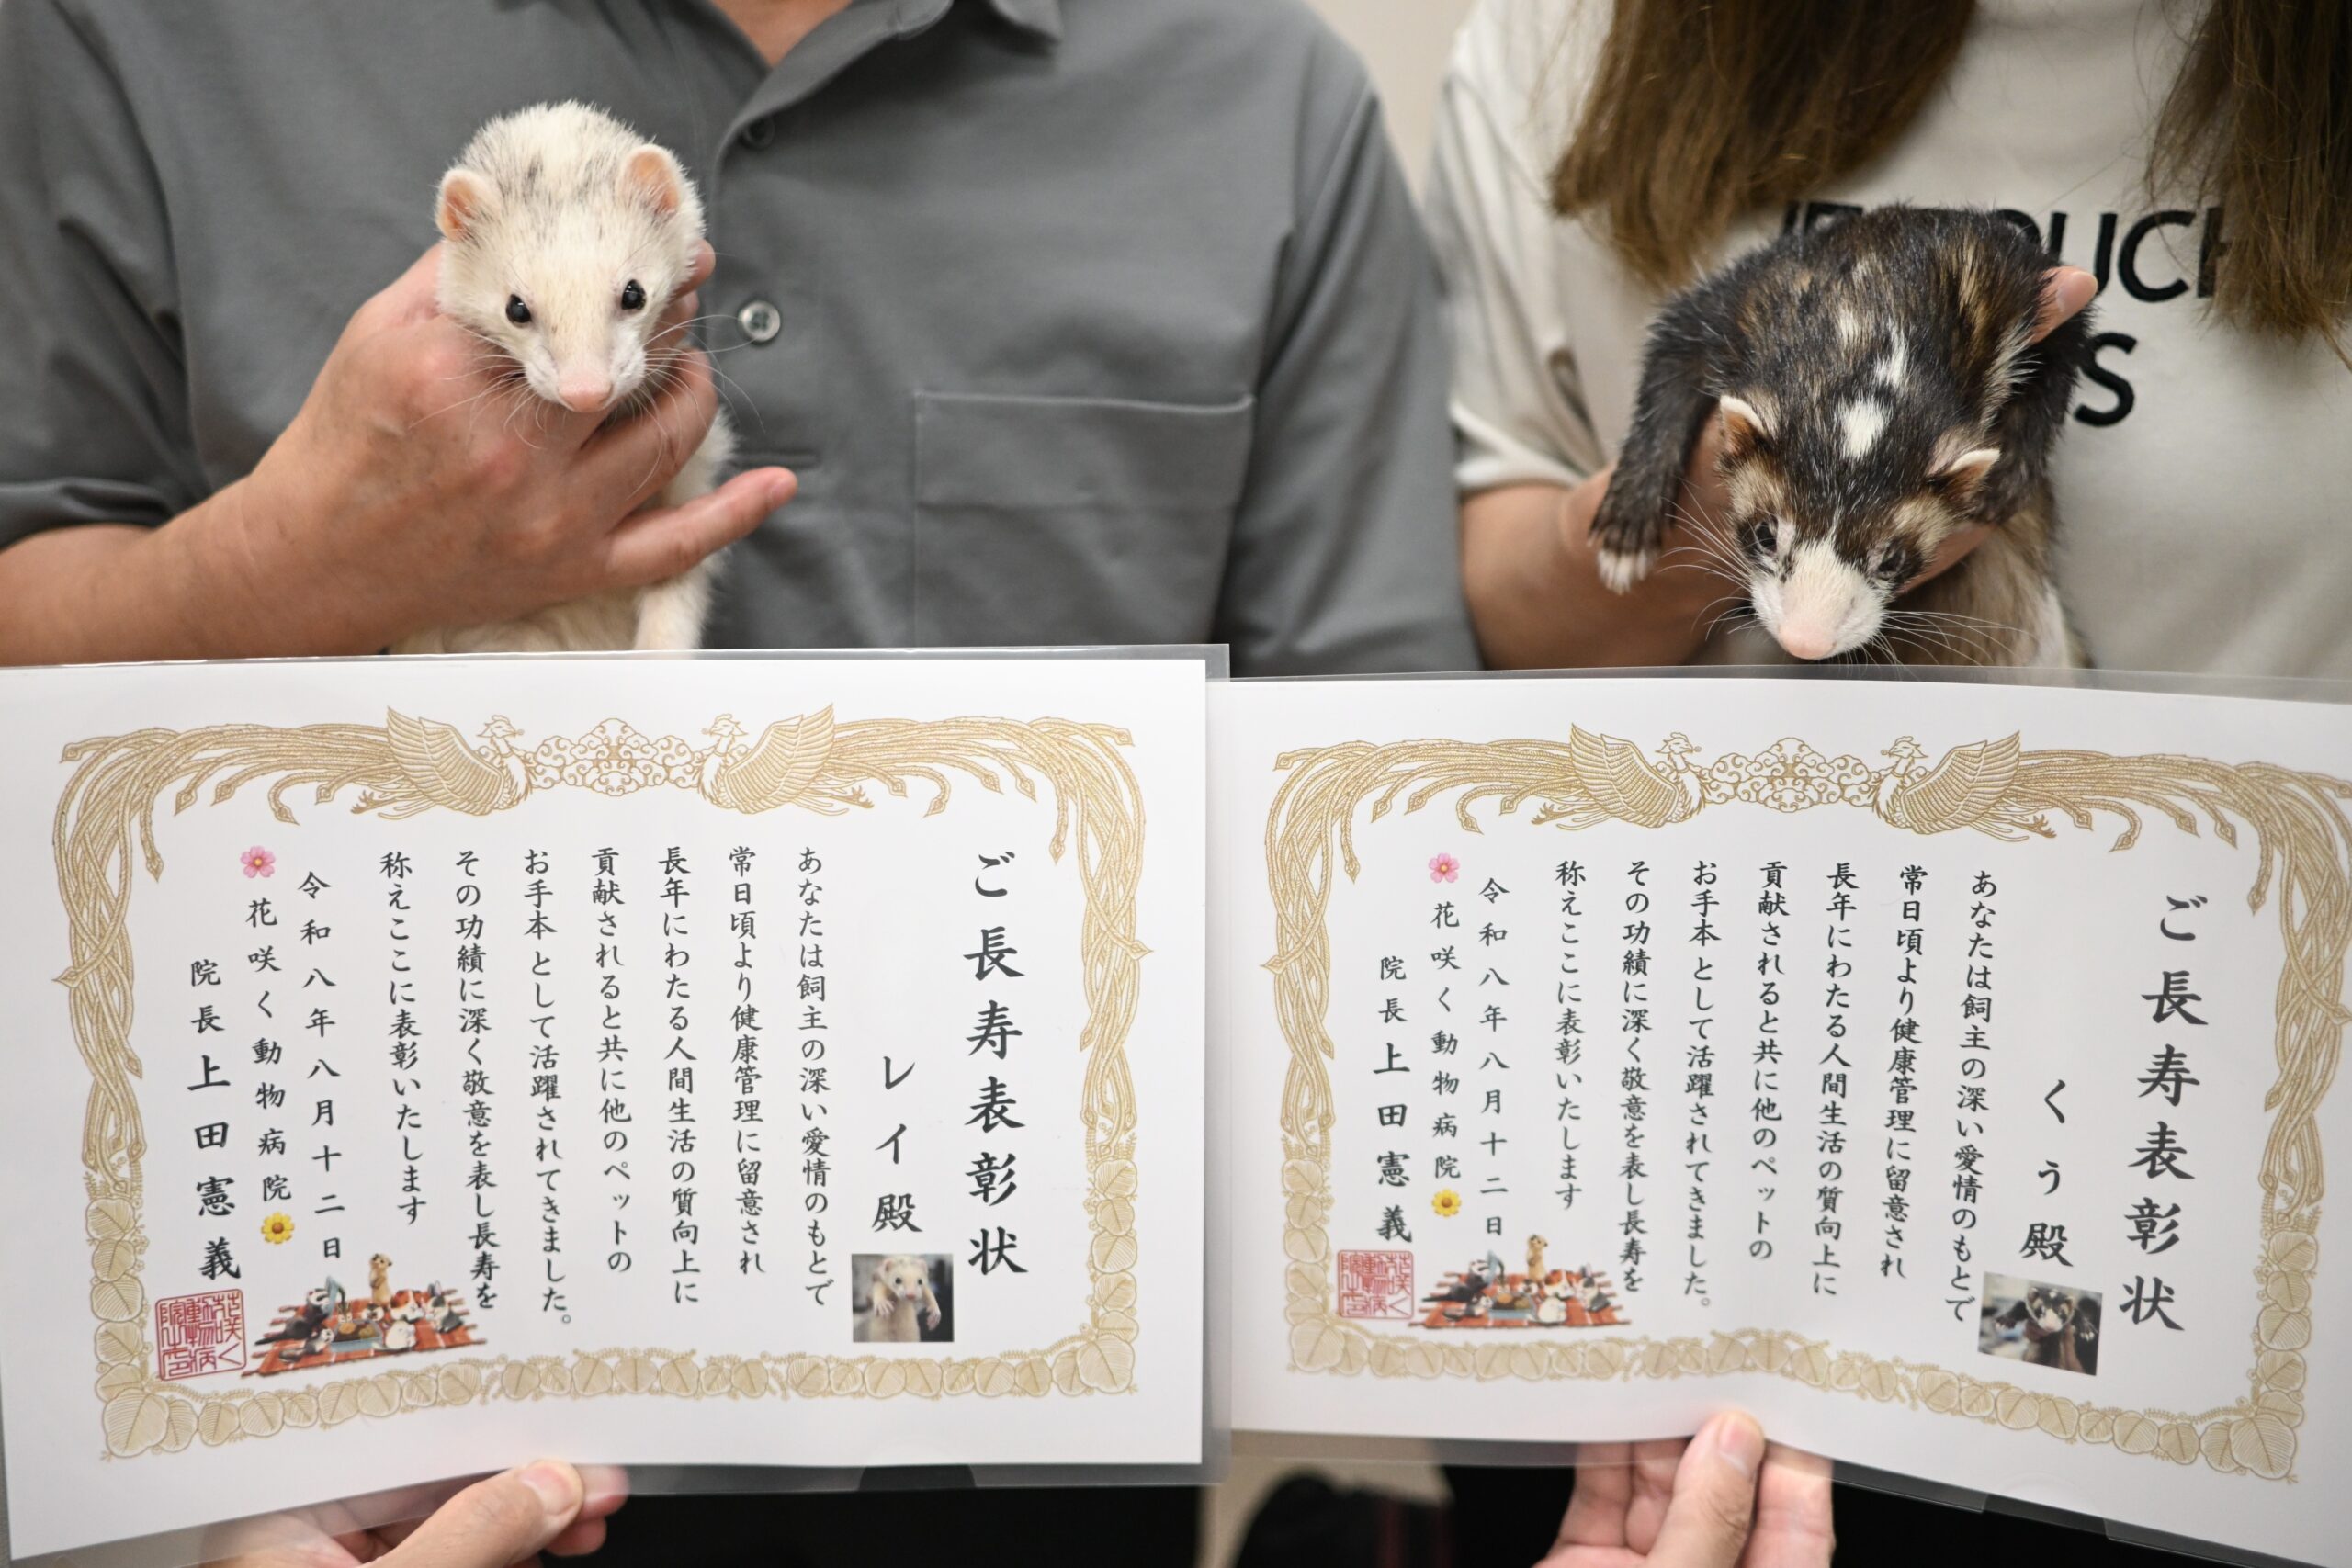 ご長寿表彰状
レイ殿
あなたは飼主の深い愛情のもとで
常日頃より健康管理に留意され
長年にわたる人間生活の質向上に
貢献されると共に他のペットの
お手本として活躍されてきました。
その功績に深く敬意を表し長寿を
称えここに表彰いたします
令和八年八月十二日
花咲く動物病院
院長上田憲義
花咲く
動物病
院之印
ご長寿表彰状
くぅ殿
あなたは飼主の深い愛情のもとで
常日頃より健康管理に留意され
長年にわたる人間生活の質向上に
貢献されると共に他のペットの
お手本として活躍されてきました。
その功績に深く敬意を表し長寿を
称えここに表彰いたします
令和八年八月十二日
花咲く動物病院
院長上田憲義
花咲く
動物病
院之印